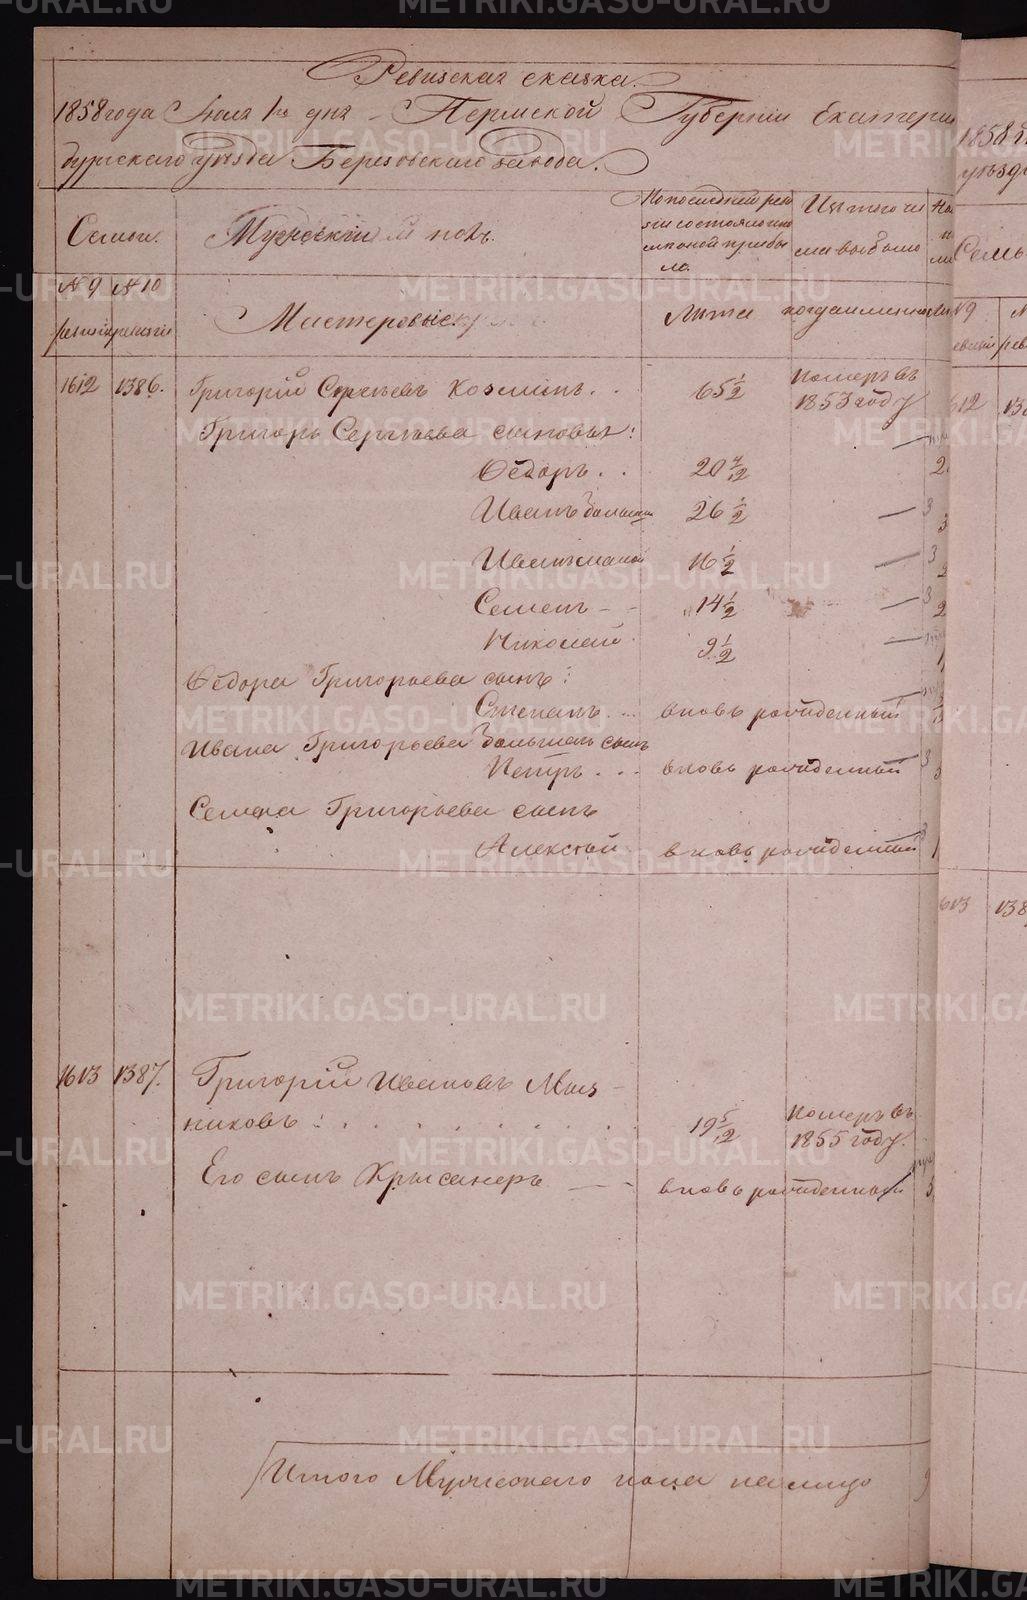 Ревизская сказка.
1858 года Июля 1го дня - Пермской Губернiи Екатерин
бургскаго уѣзда Березовскаго завода.
Семьи.
Мужескiй полъ.
По последней реви
зiи состояло и по
сле оной прибы
ло.
Изъ того чи
сла выбыло
№ 9 № 10
ревизiи ревизiи
Мастеровые.
Лѣта
когда именно
1612 1386. Григорiй Сергѣевъ Козминъ. . . 65 1/2 Померъ въ
1853 году
Григорья Сергѣева сыновья:
Ѳедоръ . . 20 7/12 2
Иванъ большой 26 1/2 — 3 3
Иванъ малой 16 1/2 — 3 2
Семенъ - - 14 1/2 — 3 2
Николай 9 1/2 — 1
Ѳедора Григорьева сынъ:
Степанъ . . . вновь рожденный
Ивана Григорьева большаго сынъ
Петръ . . . вновь рожденный 3
Семена Григорьева сынъ
Алексѣй вновь рожденный 1
1613 1387. Григорiй Ивановъ Мыль
никовъ: . . . . . . . . 19 5/12 померъ въ
1855 году.
Его сынъ Хрисанфъ — - вновь рожденный 3
Итого Мужескаго пола на лицо 9
1858 г
уѣзда
Семь
№ 9
612 138
613 138
METRIKI.GASO-URAL.RU